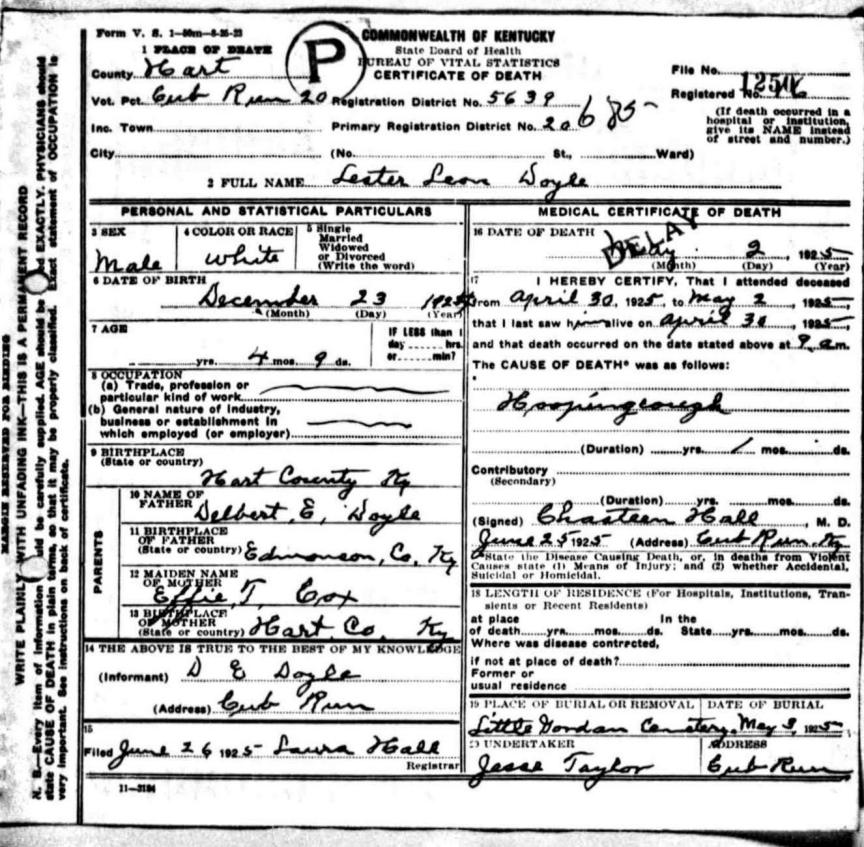 Form V. S. 1-50m-8-25-23
COMMONWEALTH OF KENTUCKY
State Board of Health
BUREAU OF VITAL STATISTICS
CERTIFICATE OF DEATH
P
1 PLACE OF DEATH
County Hart
Vot. Pct. Cub Run 20 Registration District No. 5639
Inc. Town Primary Registration District No. 20 685-
City (No. St., Ward)
File No.
Registered No.
(If death occurred in a
hospital or institution,
give its NAME instead
of street and number.)
2 FULL NAME Lester Leon Doyle
PERSONAL AND STATISTICAL PARTICULARS
3 SEX
Male
4 COLOR OR RACE
White
5 Single
Married
Widowed
or Divorced
(Write the word)
6 DATE OF BIRTH
December 23
(Month) (Day) (Year)
7 AGE
yrs. 4 mos. 9 ds.
IF LESS than 1
day hrs.
or min?
8 OCCUPATION
(a) Trade, profession or
particular kind of work
(b) General nature of industry,
business or establishment in
which employed (or employer)
9 BIRTHPLACE
(State or country)
Hart County Ky
PARENTS
10 NAME OF
FATHER
Delbert, E, Doyle
11 BIRTHPLACE
OF FATHER
(State or country) Edmonson, Co, Ky
12 MAIDEN NAME
OF MOTHER
Effie, T, Cox
13 BIRTHPLACE
OF MOTHER
(State or country) Hart, Co, Ky
14 THE ABOVE IS TRUE TO THE BEST OF MY KNOWLEDGE
(Informant) D E Doyle
(Address) Cub Run
15
Filed June 26 1925 Laura Hall
Registrar
11-3184
MEDICAL CERTIFICATE OF DEATH
16 DATE OF DEATH May 2, 1925
DELAY
(Month) (Day) (Year)
17 I HEREBY CERTIFY, That I attended deceased
from April 30, 1925, to May 2, 1925,
that I last saw him alive on April 30, 1925,
and that death occurred on the date stated above at 9 am.
The CAUSE OF DEATH* was as follows:
Hoopingcough
(Duration) yrs. 1 mos. ds.
Contributory
(Secondary)
(Duration) yrs. mos. ds.
(Signed) Chasteen Hall, M. D.
June 25 1925 (Address) Cub Run, Ky
*State the Disease Causing Death, or, in deaths from Violent
Causes state (1) Means of Injury; and (2) whether Accidental,
Suicidal or Homicidal.
18 LENGTH OF RESIDENCE (For Hospitals, Institutions, Tran-
sients or Recent Residents)
at place In the
of death yrs. mos. ds. State yrs. mos. ds.
Where was disease contrected,
if not at place of death?
Former or
usual residence
19 PLACE OF BURIAL OR REMOVAL DATE OF BURIAL
Little Jordan Cemetery, May 3, 1925
20 UNDERTAKER ADDRESS
Jesse Taylor Cub Run
MARGIN RESERVED FOR BINDING
WRITE PLAINLY WITH UNFADING INK—THIS IS A PERMANENT RECORD
N. B.—Every item of information should be carefully supplied. AGE should be stated EXACTLY. PHYSICIANS should
state CAUSE OF DEATH in plain terms, so that it may be properly classified. Exact statement of OCCUPATION is
very important. See instructions on back of certificate.